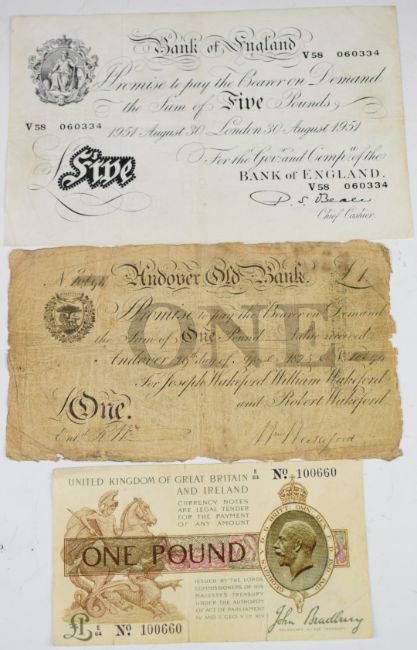 Bank of England
V58 060334
I Promise to pay the Bearer on Demand
the Sum of Five Pounds
V58 060334
1951 August 30 London 30 August 1951
For the Govr. and Compa. of the
BANK OF ENGLAND.
V58 060334
Five
P. S. Beale
Chief Cashier.
Andover Old Bank. £1
I Promise to pay the Bearer on Demand
ONE
the Sum of One Pound Value received
Andover day of April 1825
For Joseph Wakeford William Wakeford
and Robert Wakeford
£One.
Entd.
Wm Wakeford
UNITED KINGDOM OF GREAT BRITAIN
AND IRELAND
E/84 No. 100660
CURRENCY NOTES
ARE LEGAL TENDER
FOR THE PAYMENT
OF ANY AMOUNT
ONE POUND
ISSUED BY THE LORDS
COMMISSIONERS OF HIS
MAJESTY'S TREASURY
UNDER THE AUTHORITY
OF ACT OF PARLIAMENT
IV AND V GEO. V CH. XIV
£1 E/84 No. 100660
John Bradbury
SECRETARY TO THE TREASURY